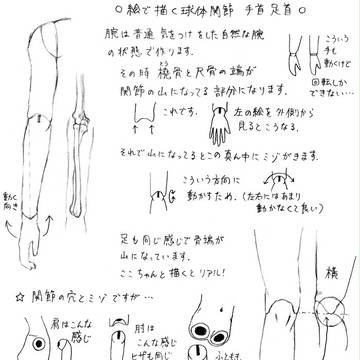 ○絵で描く球体関節 手首足首
腕は普通 気をつけをした自然な腕
の状態で作ります。
その時 橈骨と尺骨の端が
とう
関節の山になってる部分になります。
こういう
手も
動くけど
回転しか
できない…
これです。
左の絵を外側から
見るとこうなる。
それで山になってるとこの真ん中にミゾがきます。
こういう方向に
動かすため。
(左右にはあまり
動かなくて良い)
動く
向き
足も同じ感じで骨端が
山になっています。
ここちゃんと描くとリアル!
横
☆ 関節の穴とミゾですが…
肩はこんな
感じ
肘は
こんな感じ
ヒザも同じ
ふともも